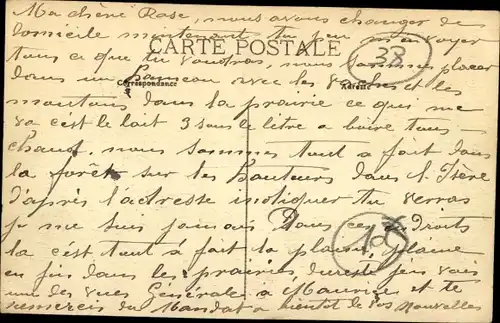 Ma chère Rose, nous avons changer de
domicile maintenant tu peu envoyer
CARTE POSTALE
38
tous ce que tu voudras, nous sommes placer
dans un hameau avec les vaches et les
Correspondance
Adresse
moutons dans la prairie ce qui me
va c'est le lait 3 sous le litre a boire tous
chaud. nous sommes tout a fait dans
la forêt sur les hauteurs dans l'Isère
d'après l'adresse indiquer tu verras
je me suis jamais Dans ces Droits
la c'est tout à fait la plaine, plaine
en fin dans les prairies, du reste
une des vues Générales a et te
remercie du Mandat a bientot de vos Nouvelles